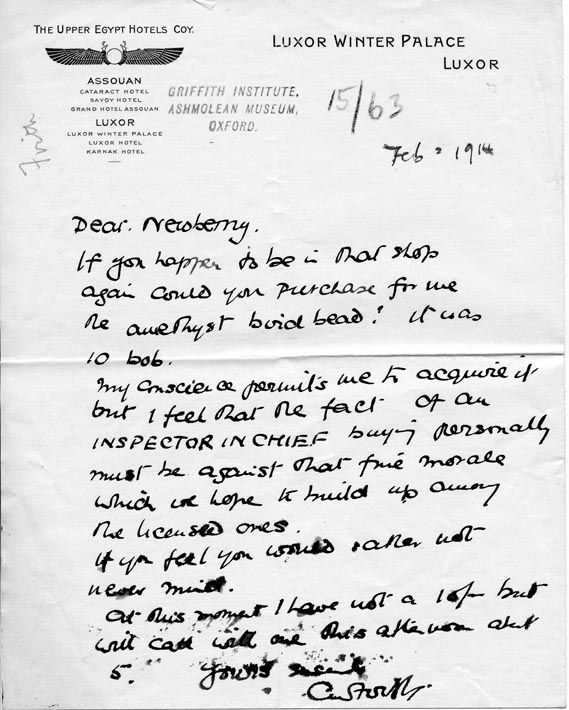 THE UPPER EGYPT HOTELS COY.
ASSOUAN
CATARACT HOTEL
SAVOY HOTEL
GRAND HOTEL ASSOUAN
LUXOR
LUXOR WINTER PALACE
LUXOR HOTEL
KARNAK HOTEL
Frith
GRIFFITH INSTITUTE,
ASHMOLEAN MUSEUM,
OXFORD.
15/63
LUXOR WINTER PALACE
LUXOR
Feb = 1914
Dear. Newberry.
If you happen to be in that shop
again could you purchase for me
the amethyst bird bead? It was
10 bob.
My conscience permits me to acquire it
but I feel that the fact of an
INSPECTOR IN CHIEF buying personally
must be against that fine morale
which we hope to build up among
the licensed ones.
If you feel you would rather not
never mind.
At this moment I have not a 10/- but
will call with one this afternoon abt
5. Yours sincerely